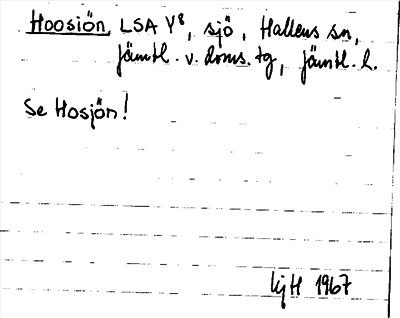 Hoosiön, LSA Y8, sjö, Hallens sn,
Jämtl. v. doms. tg, Jämtl. l.
Se Hosjön!
KjH 1967